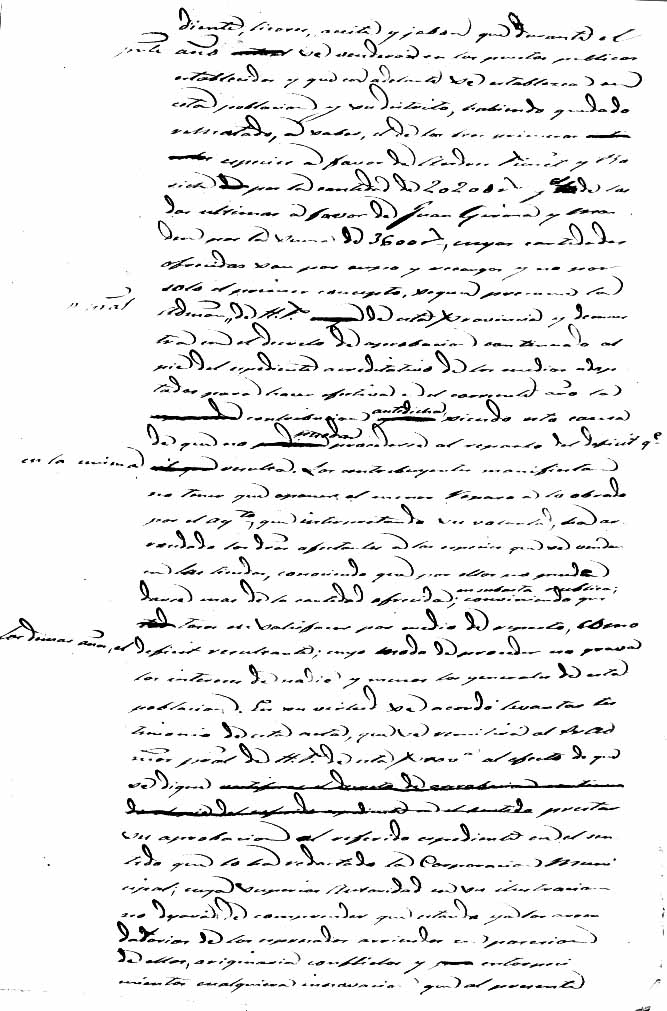 diente, licores, aceite y jabon que durante el
pnte año se venderan en los puestos publicos
establecidos y que en adelante se establezcan en
esta poblacion y su distrito, habiendo quedado
rematado, a saber, el de las tres primeras
especies a favor de y
por la cantidad de 20200 rs y el de las
dos ultimas a favor de Juan y
por la suma de 3600 rs, cuyas cantidades
ofrecidas son por cupo y recargos y no por
solo el primer concepto, segun presume la
pral
Admon de H.P. de esta Provincia y demues
tra en el decreto de aprobacion continuado al
pie del expediente acreditativo de los medios adop
tados para hacer efectiva en el corriente año la
contribucion antedicha, siendo esto causa
de que no pueda procederse al reparto del deficit qe
en la misma resulta. Los contribuyentes manifiestan
no tener que oponer el menor reparo a lo obrado
por el Aynto, que interpretando su voluntad, ha ar
rendado los dros afectantes a las especies que se venden
en las tiendas, conociendo que por ellos no puede
darse mas de la cantidad ofrecida en subasta publica;
conviniendo que
se satisfaga por medio de reparto, como
los demas años, el deficit resultante; cuyo modo de proceder no grava
los intereses de nadie y menos los generales de esta
poblacion. En su virtud se acordó levantar tes
timonio de esta acta, que se remitirá al Sr Ad
mor pral de H.P. de esta Provª al efecto de que
se digne prestar
su aprobacion al referido expediente en el sen
tido que lo ha redactado la Corporacion Muni
cipal; cuya superior Autoridad en su ilustracion
no dejará de comprender que estando ya los arren
datarios de los expresados articulos en posesion
de ellos, originaria conflictos y entorpeci
mientos cualquiera innovacion que al presente